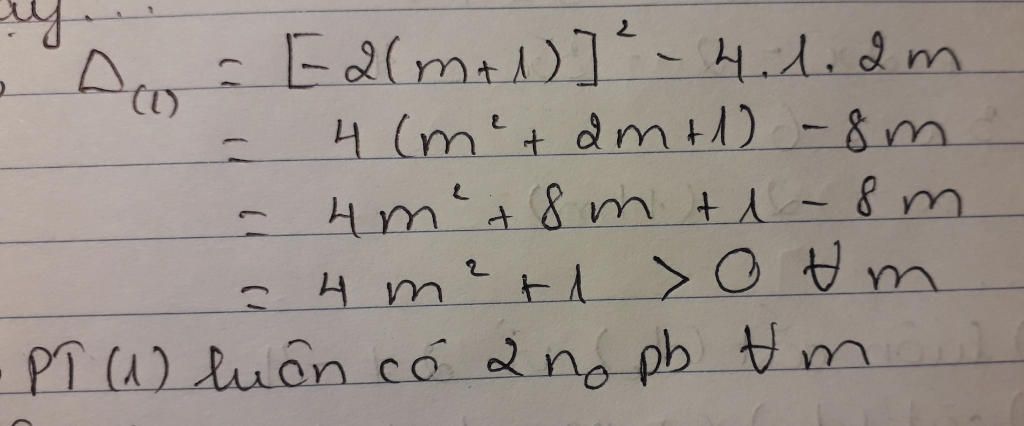 Δ(1) = [-2(m+1)]² - 4.1.2m
= 4(m²+2m+1) - 8m
= 4m²+8m+1-8m
= 4m²+1 > 0 ∀m
PT(1) luôn có 2 no pb ∀m